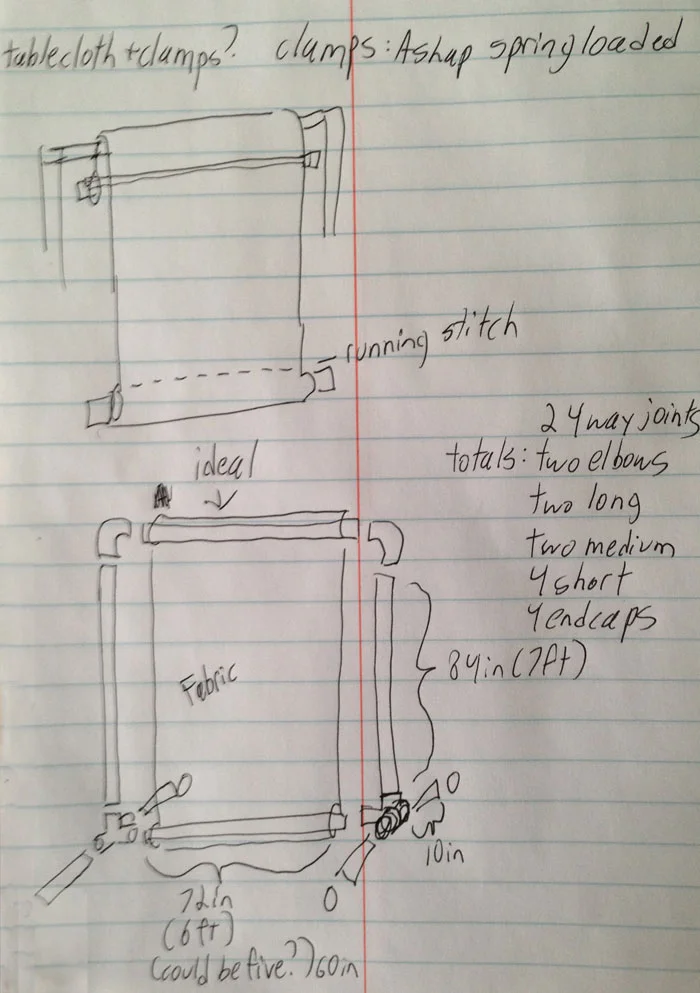 tablecloth + clamps? clamps: A shap spring loaded
running stitch
2 4 way joints
totals: two elbows
two long
two medium
4 short
4 endcaps
ideal
84in (7ft)
Fabric
10in
72in
(6ft)
(could be five?) 60in